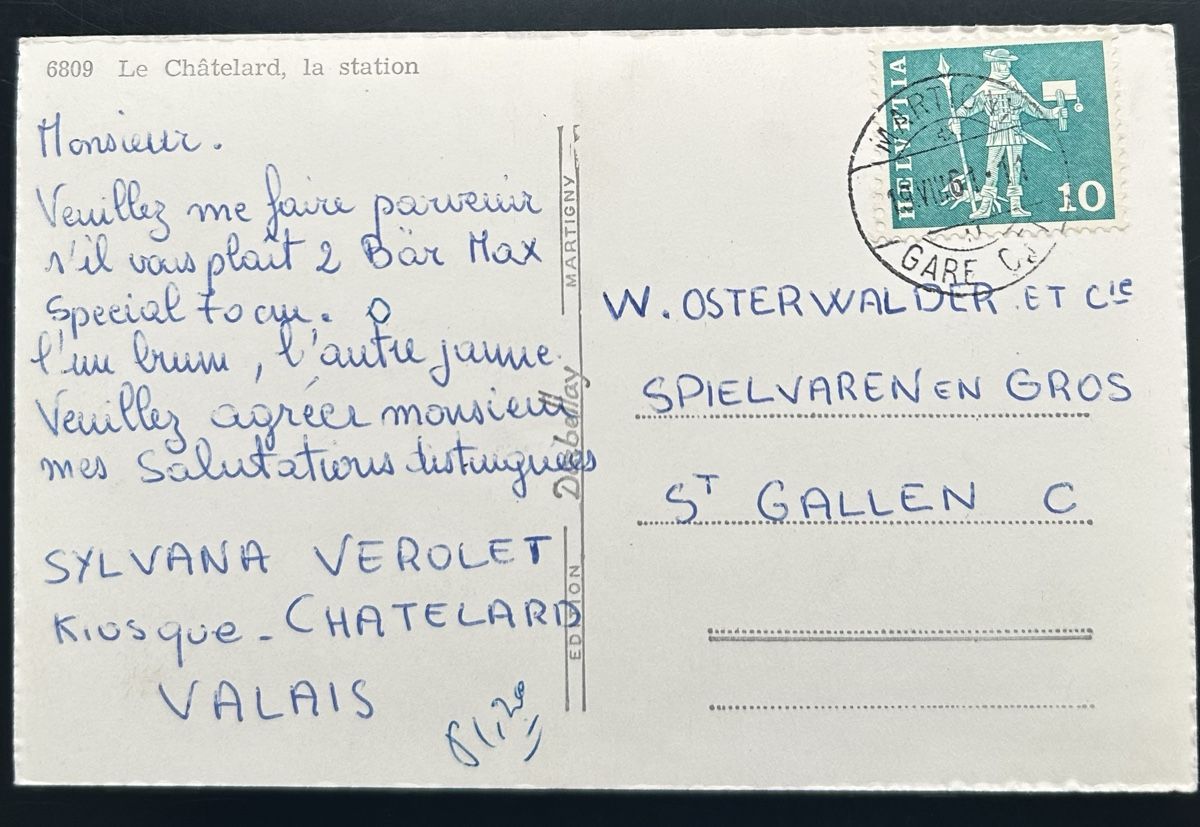 6809 Le Châtelard, la station
Monsieur.
Veuillez me faire parvenir
s'il vous plaît 2 Bär Max
Special
l'un brun, l'autre jaune.
Veuillez agréer monsieur
mes Salutations distinguées
SYLVANA VEROLET
Kiosque - CHATELARD
VALAIS
EDITION Darbellay MARTIGNY
HELVETIA
10
MARTIGNY
GARE
W. OSTERWALDER ET Cie
SPIELVAREN EN GROS
ST GALLEN C